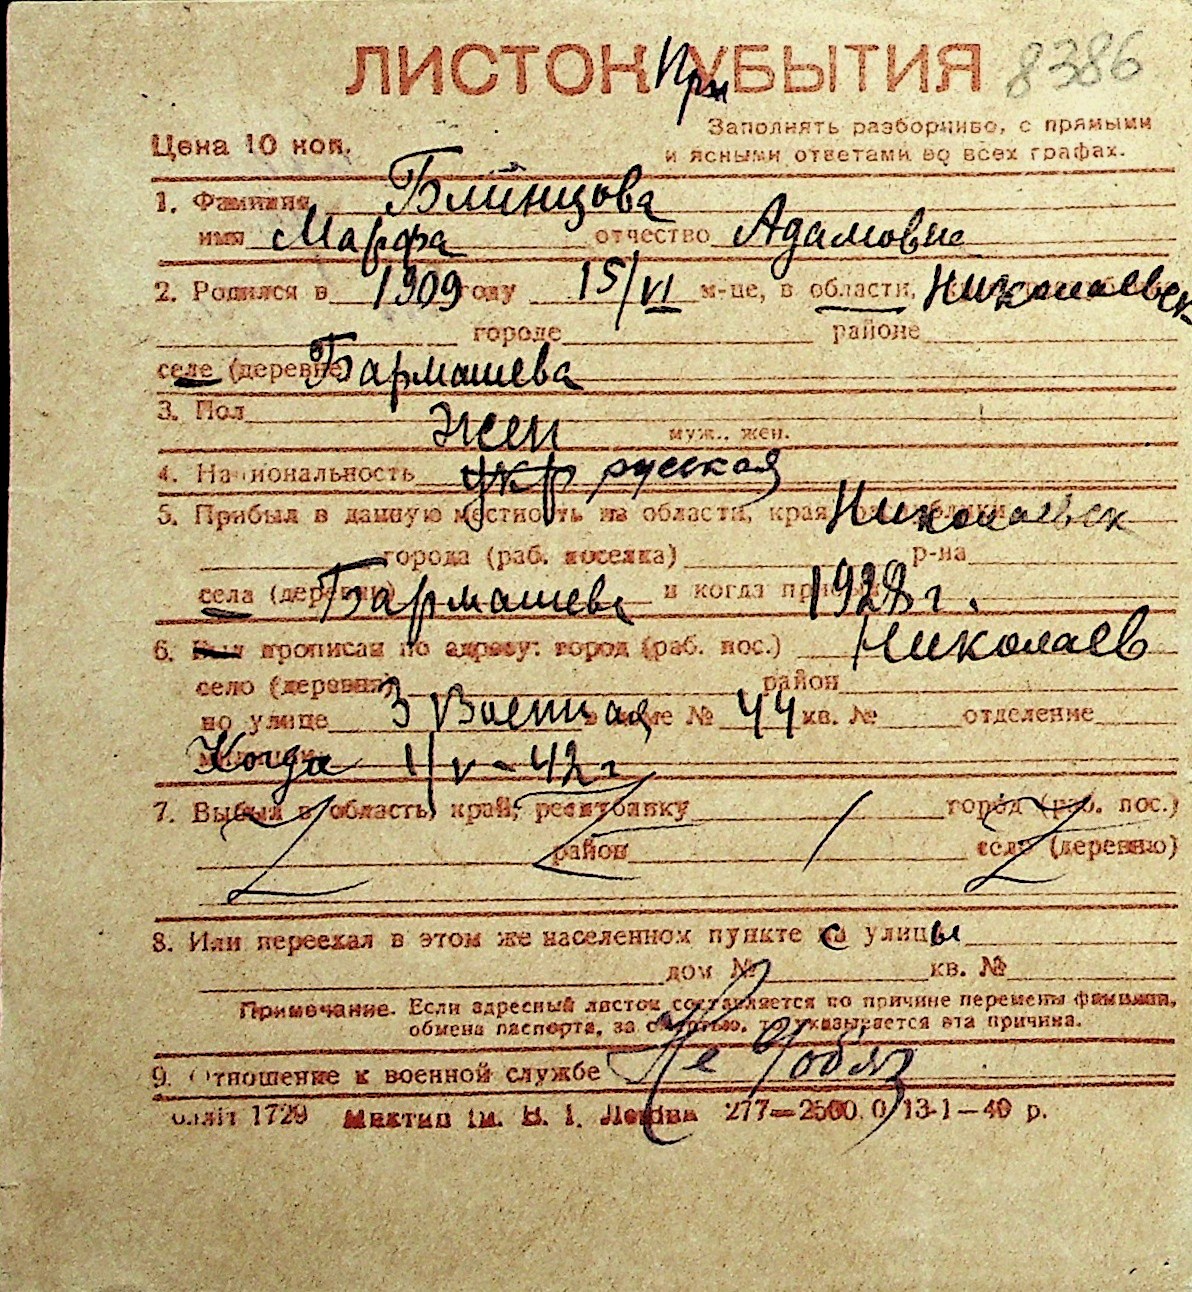 ЛИСТОК При УБЫТИЯ 8386
Заполнять разборчиво, с прямыми
Цена 10 коп.
и ясными ответами во всех графах.
1. Фамилия Блинцова
имя Марфа отчество Адамовна
2. Родился в 1909 году 15/VI м-це, в области, Николаевск
городе районе
селе (деревне) Бармашева
3. Пол жен муж., жен.
4. Национальность укр русская
5. Прибыл в данную местность из области, края, Николаевск
города (раб. поселка) р-на
села (деревни) Бармашева и когда прибыл 1928 г.
6. Был прописан по адресу: город (раб. пос.) Николаев
село (деревня) район
по улице 3 Военная в доме № 44 кв. № отделение
милиции Когда 1/V-42 г
7. Выбыл в область, край, республику город (раб. пос.)
район село (деревню)
8. Или переехал в этом же населенном пункте с улицы
дом № кв. №
Примечание. Если адресный листок составляется по причине перемены фамилии,
обмена паспорта, за смертью, то указывается эта причина.
9. Отношение к военной службе Не обяз
1729 Миктип ім. В. І. Леніна 277—2500. 0 13-1—40 р.